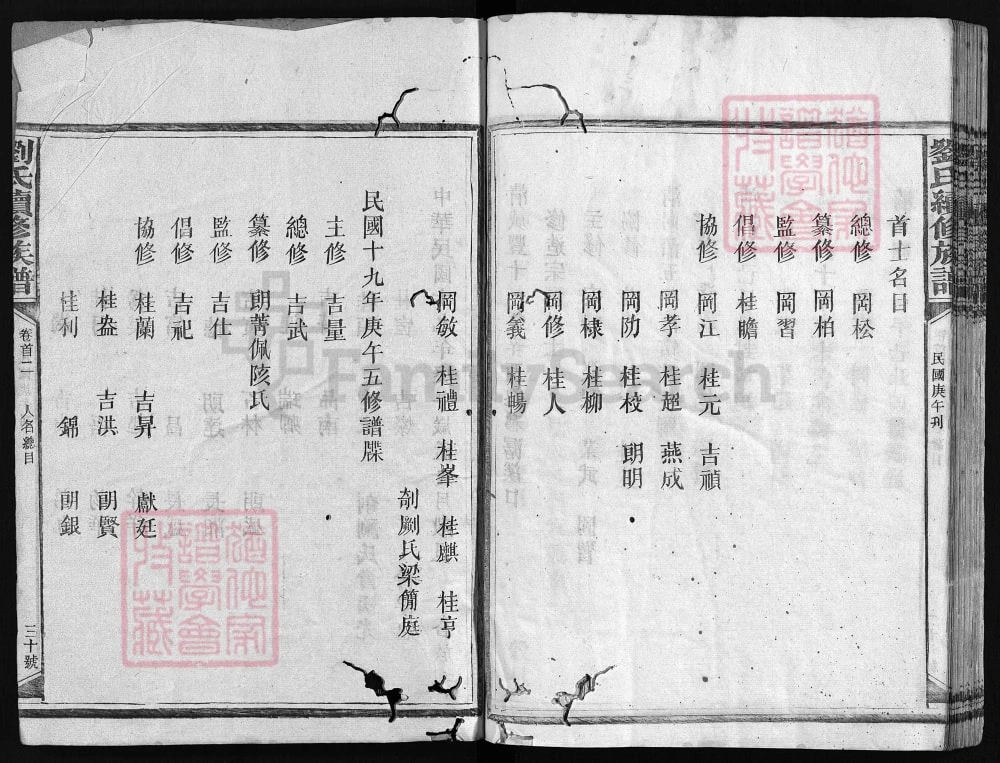 劉氏續修族譜
民國庚午刋
首士名目
總修 岡松
纂修 岡柏
監修 岡習
倡修 桂瞻
協修 岡江 桂元 吉禎
岡孝 桂超 燕成
岡阞 桂枝 朗明
岡棣 桂柳
岡修 桂人
岡義 桂暢
岡敏 桂禮 桂峯 桂麒 桂亨
剞劂氏梁簡庭
民國十九年庚午五修譜牒
主修 吉量
總修 吉武
纂修 朗菁佩陔氏
監修 吉仕
倡修 吉祀
協修 桂蘭 吉昇 獻廷
桂盎 吉洪 朗賢
桂利 錦 朗銀
劉氏續修族譜
卷首二
人名總目
三十號
FamilySearch